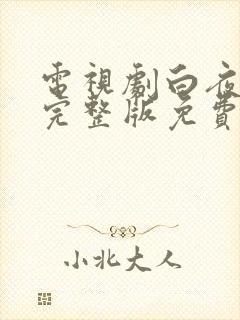 電視劇白夜
完整版免費
小北大人